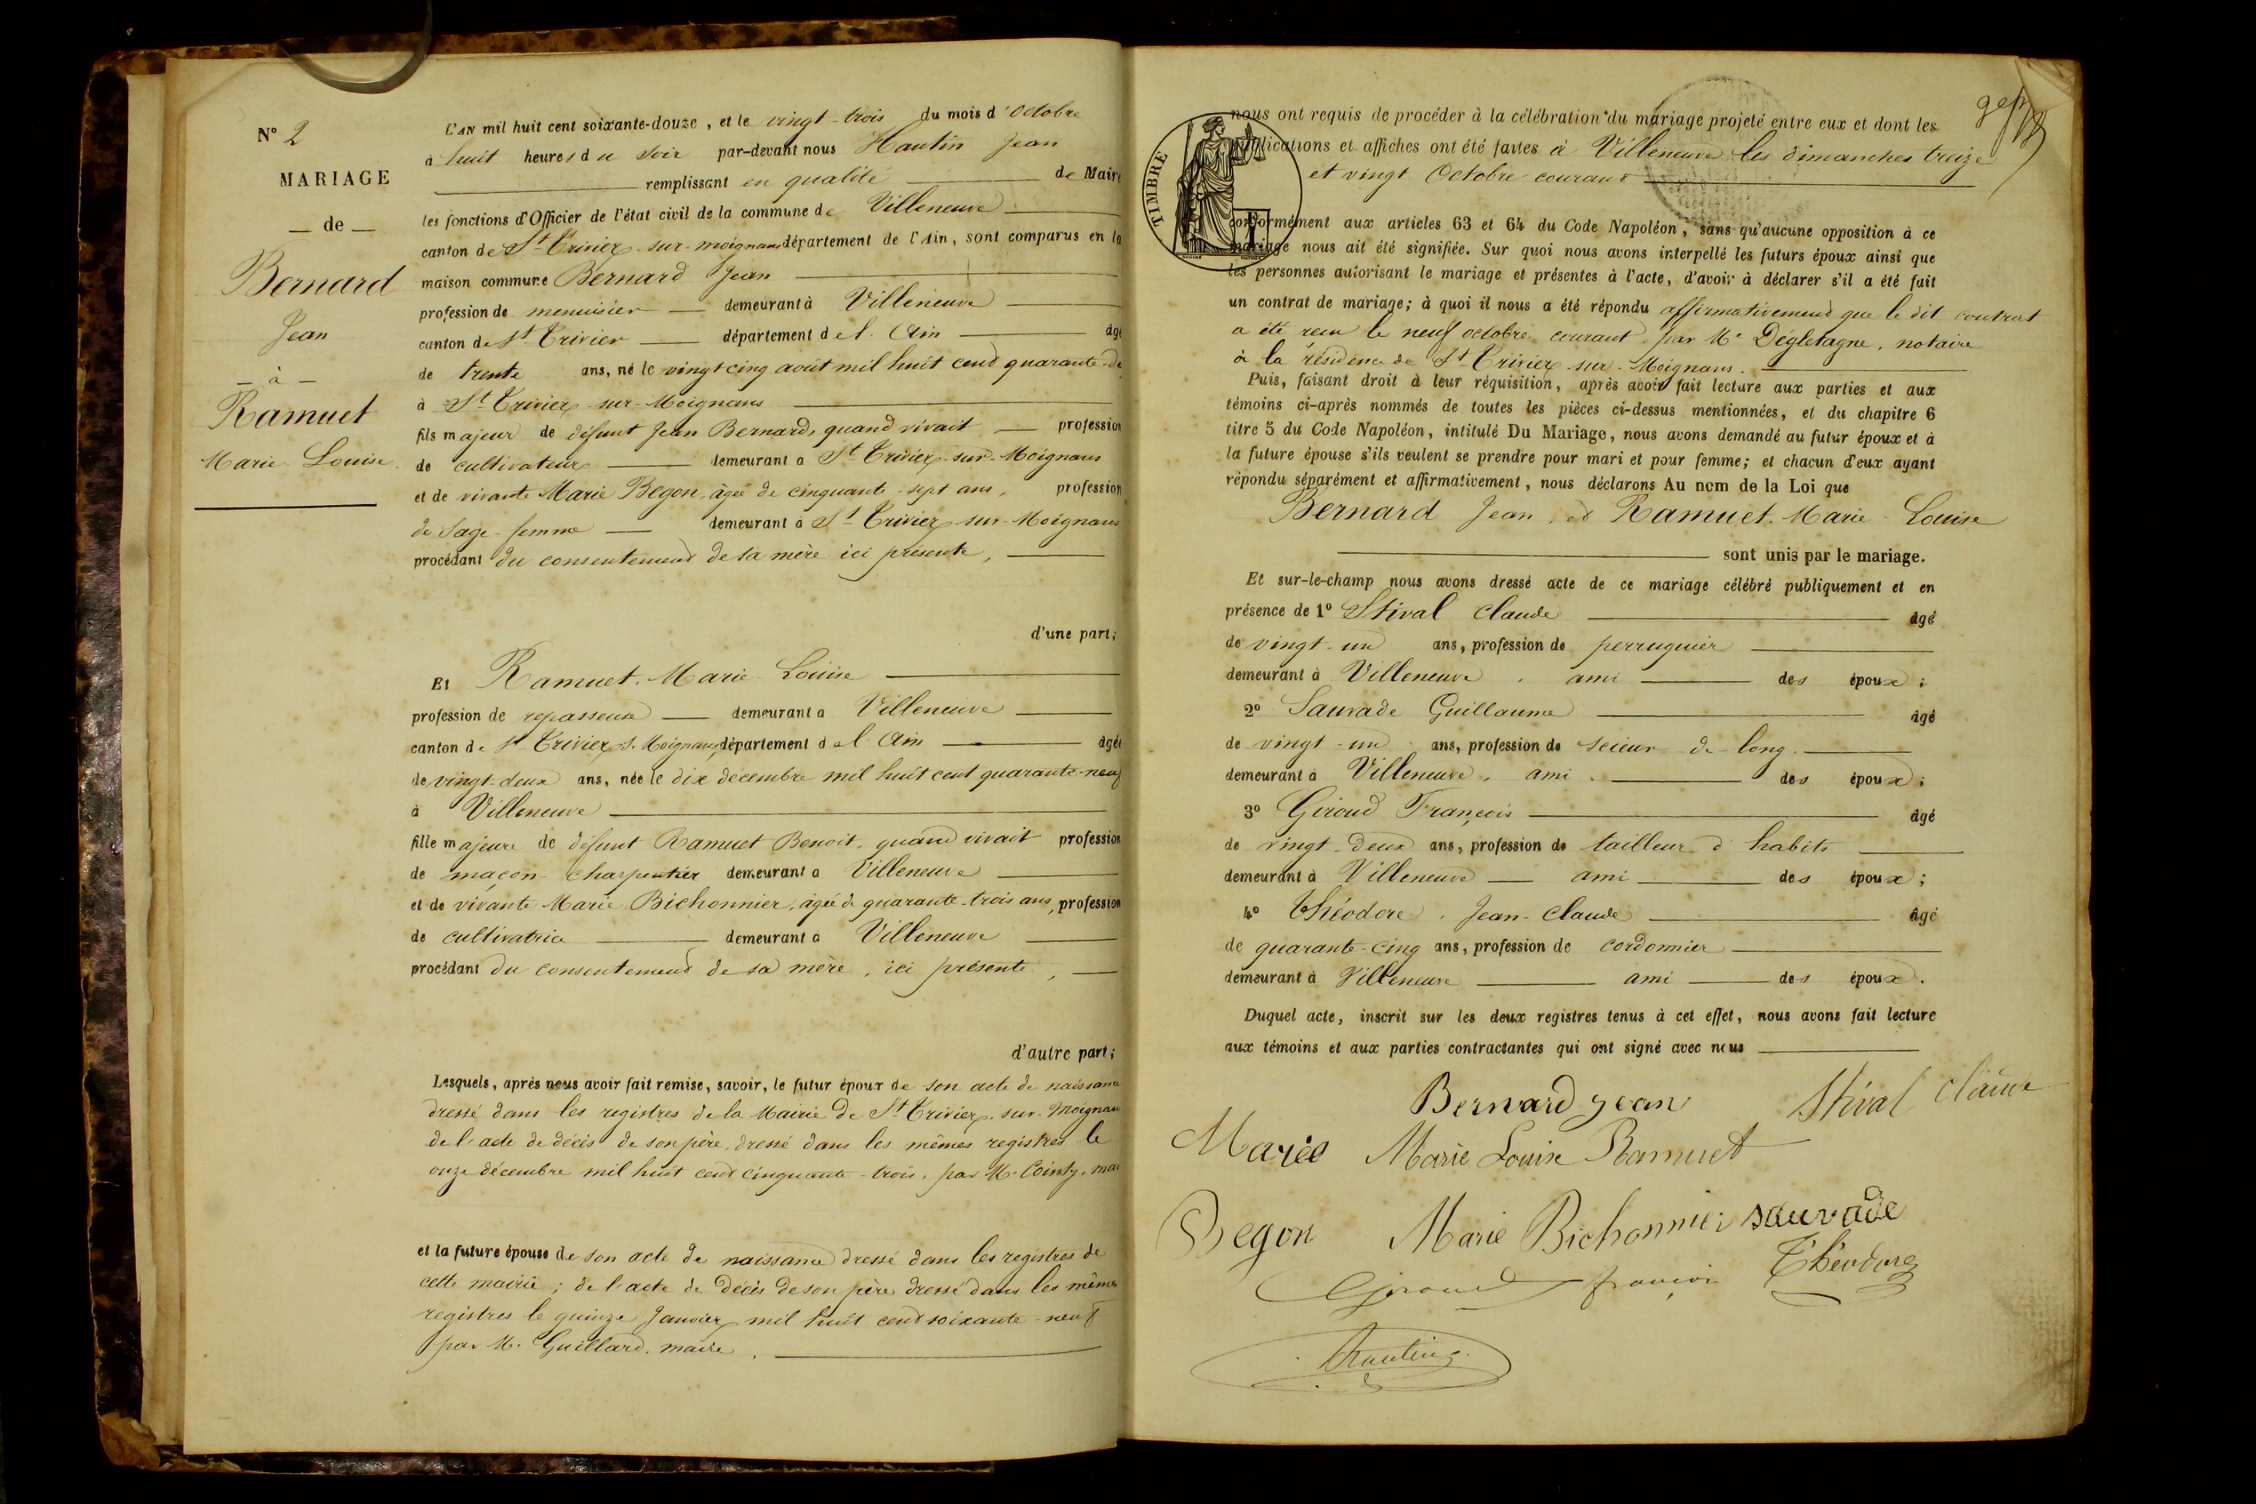 N° 2
MARIAGE
— de —
Bernard
Jean
— à —
Ramuet
Marie Louise.
L'AN mil huit cent soixante-douze, et le vingt-trois du mois d'Octobre
à huit heures du soir par-devant nous Hautin Jean
remplissant en qualité de Maire
les fonctions d'Officier de l'état civil de la commune de Villeneuve
canton de St Trivier-sur-moignans département de l'Ain, sont comparus en la
maison commune Bernard Jean
profession de menuisier demeurant à Villeneuve
canton de St Trivier département de l'Ain âgé
de trente ans, né le vingt cinq août mil huit cent quarante-de
à St Trivier-sur-Moignans
fils majeur de défunt Jean Bernard, quand vivait profession
de cultivateur demeurant à St Trivier-sur-Moignans
et de vivante Marie Begon, âgée de cinquante-sept ans, profession
de Sage-femme demeurant à St Trivier-sur-Moignans
procédant du consentement de sa mère ici présente,
d'une part;
Et Ramuet Marie Louise
profession de repasseuse demeurant à Villeneuve
canton de St Trivier s. Moignans, département de l'Ain âgée
de vingt-deux ans, née le dix décembre mil huit cent quarante-neuf
à Villeneuve
fille majeure de défunt Ramuet Benoit, quand vivait profession
de maçon-charpentier demeurant à Villeneuve
et de vivante Marie Bichonnier, âgée de quarante-trois ans, profession
de cultivatrice demeurant à Villeneuve
procédant du consentement de sa mère, ici présente,
d'autre part;
Lesquels, après nous avoir fait remise, savoir, le futur époux de son acte de naissance
dressé dans les registres de la Mairie de St Trivier-sur-Moignans
de l'acte de décès de son père, dressé dans les mêmes registres le
onze décembre mil huit cent cinquante-trois, par Mr mai
et la future épouse de son acte de naissance dressé dans les registres de
cette mairie; de l'acte de décès de son père dressé dans les mêmes
registres le quinze Janvier mil huit cent soixante-neuf
par M. Guillard, maire.
TIMBRE
nous ont requis de procéder à la célébration du mariage projeté entre eux et dont les
publications et affiches ont été faites à Villeneuve les dimanches treize
et vingt Octobre courant
conformément aux articles 63 et 64 du Code Napoléon, sans qu'aucune opposition à ce
mariage nous ait été signifiée. Sur quoi nous avons interpellé les futurs époux ainsi que
les personnes autorisant le mariage et présentes à l'acte, d'avoir à déclarer s'il a été fait
un contrat de mariage; à quoi il nous a été répondu affirmativement que le dit contrat
a été reçu le neuf octobre courant par Me Dégletagne, notaire
à la résidence de St Trivier-sur-Moignans.
Puis, faisant droit à leur réquisition, après avoir fait lecture aux parties et aux
témoins ci-après nommés de toutes les pièces ci-dessus mentionnées, et du chapitre 6
titre 5 du Code Napoléon, intitulé Du Mariage, nous avons demandé au futur époux et à
la future épouse s'ils veulent se prendre pour mari et pour femme; et chacun d'eux ayant
répondu séparément et affirmativement, nous déclarons Au nom de la Loi que
Bernard Jean, et Ramuet Marie-Louise
sont unis par le mariage.
Et sur-le-champ nous avons dressé acte de ce mariage célébré publiquement et en
présence de 1° Stival Claude âgé
de vingt-un ans, profession de perruquier
demeurant à Villeneuve, ami des époux;
2° Sauvade Guillaume âgé
de vingt-un ans, profession de scieur de long.
demeurant à Villeneuve, ami des époux;
3° Giroud François âgé
de vingt-deux ans, profession de tailleur d'habits
demeurant à Villeneuve ami des époux;
4° Théodore, Jean-Claude âgé
de quarante-cinq ans, profession de cordonnier
demeurant à Villeneuve ami des époux.
Duquel acte, inscrit sur les deux registres tenus à cet effet, nous avons fait lecture
aux témoins et aux parties contractantes qui ont signé avec nous
Bernard jean Stival Claude
Mariee Marie Louise Ramuet
Begon Marie Bichonnier sauvade
Giroud françois Théodore
Hautin